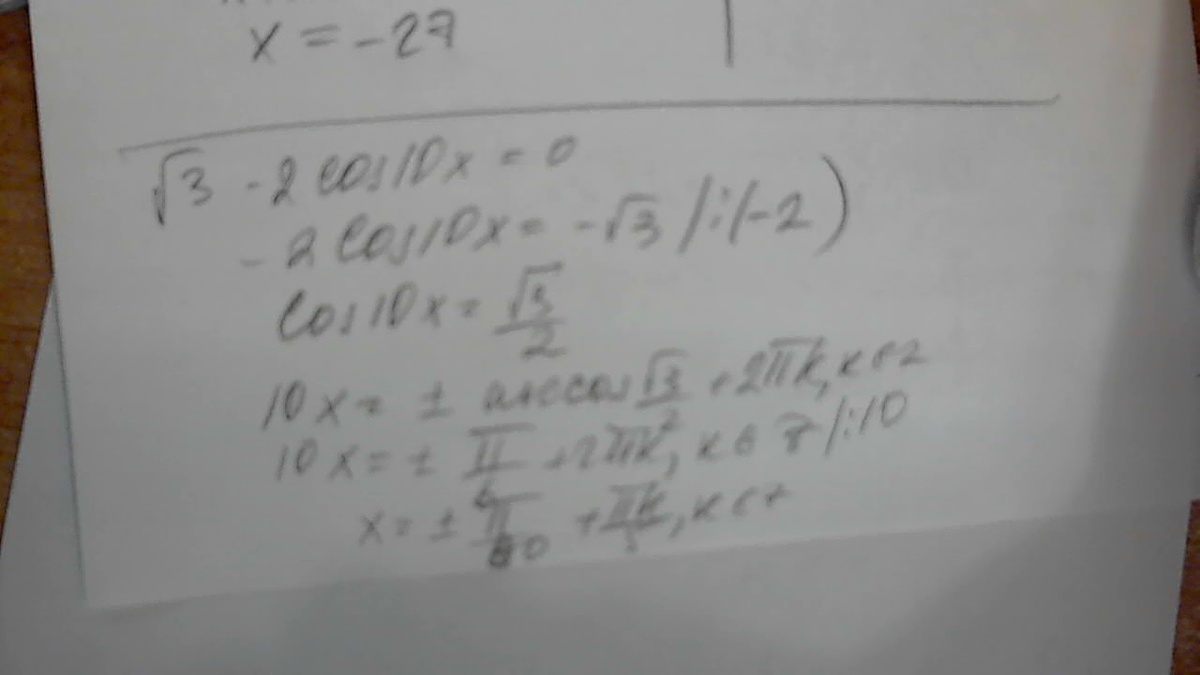 x = -27
√3 - 2 cos10x = 0
-2 cos10x = -√3 /:(-2)
cos10x = √3/2
10x = ± arccos √3/2 + 2πk, k∈z
10x = ± π/6 + 2πk, k∈z /:10
x = ± π/60 + πk/5, k∈z